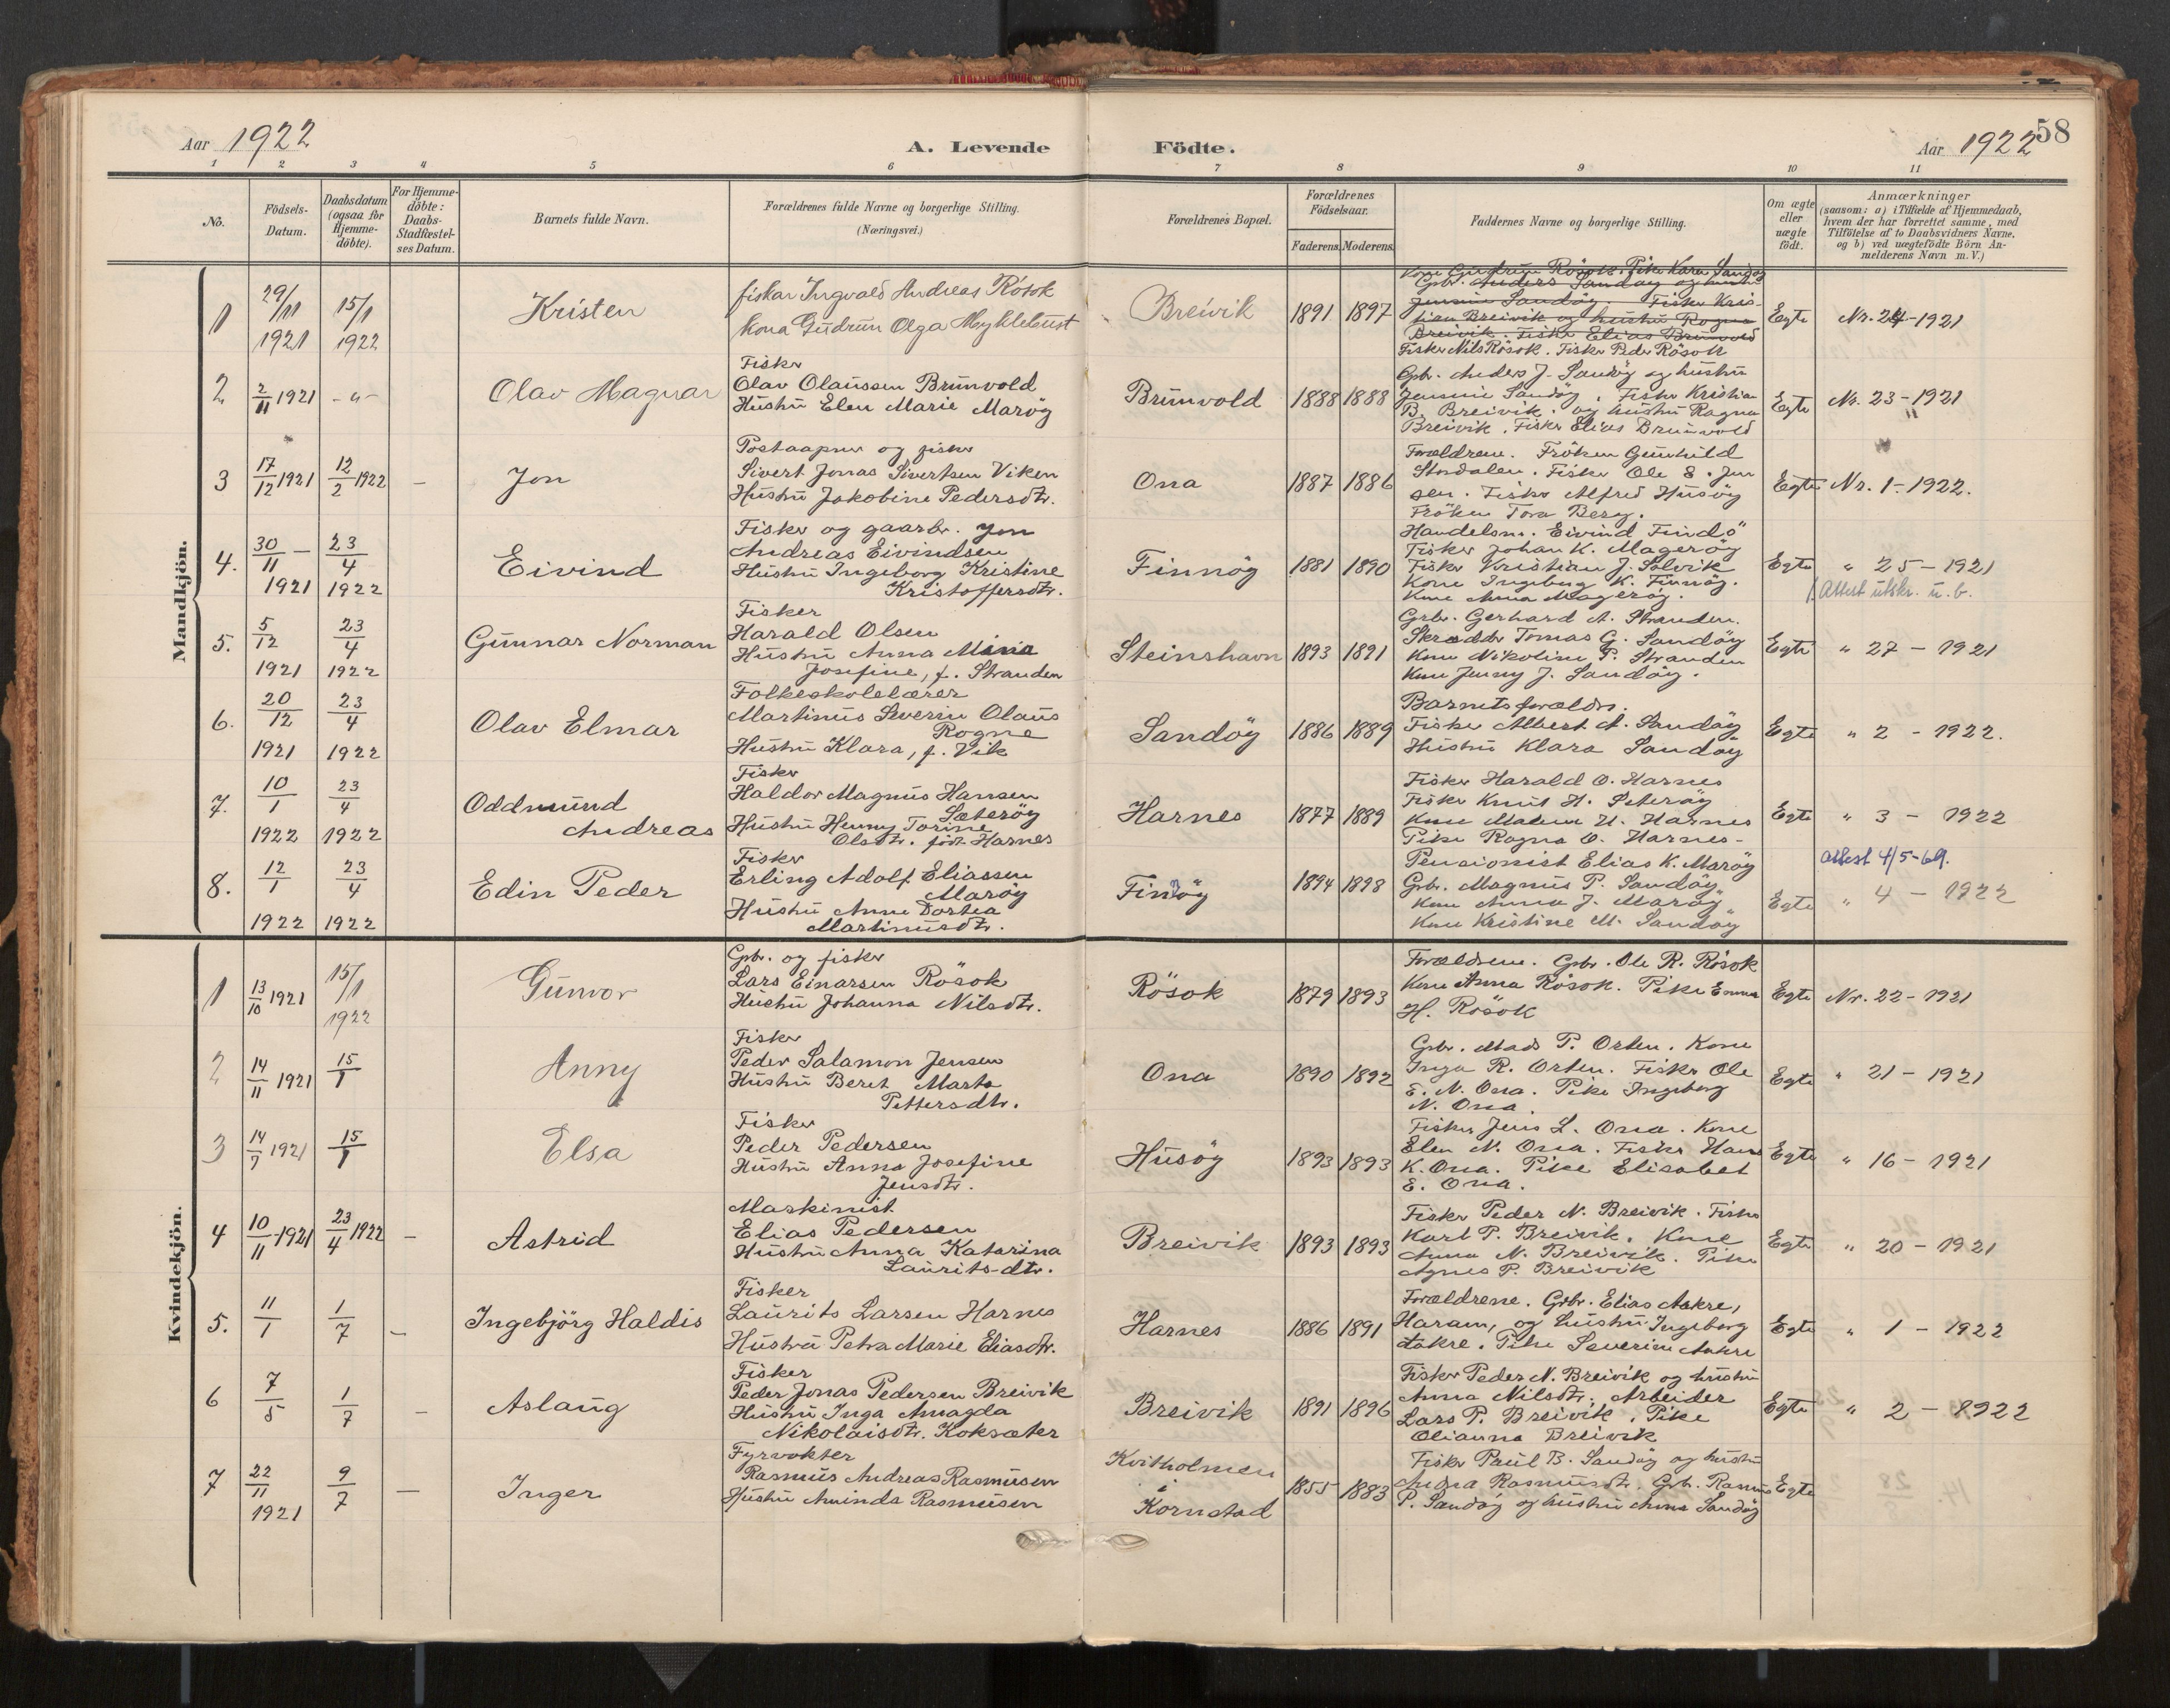 Aar 1922
A. Levende Födte.
Aar 1922
58
1 2 3 4 5 6 7 8 9 10 11
No.
Födsels-
Datum.
Daabsdatum
(ogsaa for
Hjemme-
döbte).
For Hjemme-
döbte:
Daabs-
Stadfæstel-
ses Datum.
Barnets fulde Navn.
Forældrenes fulde Navne og borgerlige Stilling.
(Næringsvei.)
Forældrenes Bopæl.
Forældrenes
Födselsaar.
Faderens. Moderens.
Faddernes Navne og borgerlige Stilling.
Om ægte
eller
uægte
födt.
Anmærkninger
(saasom: a) i Tilfælde af Hjemmedaab,
hvem der har forrettet samme, med
Tilföielse af to Daabsvidners Navne.
og b) ved uægtefödte Börn An-
melderens Navn m. V.)
Mandkjön.
1
29/11
1921
15/1
1922
Kristen
fiskar Ingvald Andreas Rösok
Kona Gudrun Olga Myklebust
Breivik
1891 1897
Kone Gudrun Rösok. Pike Kara Sandöy
Gbr. Anders Sandöy og hustru
Jennie Sandöy. Fisker Kris-
tian Breivik og hustru Ragna
Breivik. Fisker Elias Brunvold
Fisker Nils Rösok. Fisker Peder Rösok
Egte
Nr. 24-1921
2
2/11 1921
-"-
Olav Magnar
Fisker
Olav Olaussen Brunvold
Hustru Elen Marie Maröy
Brunvold
1888 1888
Gbr. Anders J. Sandöy og hustru
Jennie Sandöy, Fisker Kristian
B. Breivik. og hustru Ragna
Breivik. Fisker Elias Brunvold
Egte
Nr. 23-1921
3
17/12 1921
12/2 1922
-
Jon
Postaapner og fisker
Sivert Jonas Sivertsen Viken
Hustru Jakobine Pedersdtr.
Ona
1887 1886
Forældrene. Fröken Gunhild
Stordalen. Fisker Ole E. Jen
sen. Fisker Alfred Husöy
Fröken Tora Berg.
Egte
Nr. 1-1922.
4.
30/11 -
1921
23/4
1922
Eivind
Fisker og gaarbr. Jon
Andreas Eivindsen
Hustru Ingeborg Kristine
Kristoffersdtr.
Finnöy
1881 1890
Handelsm. Eivind Findö
Fisker Johan K. Mageröy
Fisker Kristian J. Solvik
Kone Ingeborg K. Finnöy.
Kone Anna Mageröy.
Egte
" 25-1921
Attest utskr. u. b.
5.
5/12
1921
23/4
1922
Gunnar Norman
Fisker
Harald Olsen
Hustru Anna Maria
Josefine, f. Stranden
Steinshavn
1893 1891
Grbr. Gerhard A. Stranden.
Skrædder Tomas G. Sandöy
Kone Nikoline P. Stranden
Kone Jenny J. Sandöy.
Egte
" 27 - 1921
6.
20/12
1921
23/4
1922
Olav Elmar
Folkeskolelærer
Martinus Severin Olaus
Rogne
Hustru Klara, f. Vik
Sandöy
1886 1889
Barnets forældre.
Fisker Albert A. Sandöy
Hustru Klara Sandöy
Egte
" 2 - 1922.
7.
10/1
1922
23/4
1922
Oddmund
Andreas
Fisker
Haldor Magnus Hansen
Sæteröy
Hustru Henny Torine
Olsdtr. födt Harnes
Harnes
1877 1889
Fisker Harald O. Harnes
Fisker Knut H. Seteröy
Kone H. Harnes
Pike Ragna O. Harnes-
Egte
" 3 - 1922
8.
12/1
1922
23/4
1922
Edin Peder
Fisker
Erling Adolf Eliassen
Maröy
Hustru Anne Dortea
Martinusdtr.
Finnöy
1894 1898
Pensionist Elias K. Maröy
Grbr. Magnus P. Sandöy
Kone Anna J. Maröy
Kone Kristine M. Sandöy
Egte
Attest 4/5-69.
" 4 - 1922
Kvindekjön.
1
13/10 1921
15/1
1922
Gunvor
Grbr. og fisker
Lars Einarsen Rösok
Hustru Johanna Nilsdtr.
Rösok
1879 1893
Forældrene. Grbr. Ole R. Rösok
Kone Anna Rösok. Pike Emma
H. Rösok
Egte
Nr. 22-1921
2
14/11 1921
15/1
Anny
Fisker
Peder Salamon Jensen
Hustru Beret Marta
Pettersdtr.
Ona
1890 1892
Grbr. Mads P. Orten. Kone
Inga R. Orten. Fisker Ole
E. N. Ona. Pike Ingeborg
N. Ona.
Egte
" 21 - 1921
3
14/7 1921
15/1
Elsa
Fisker
Peder Pedersen
Hustru Anna Josefine
Jensdtr.
Husöy
1893 1893
Fisker Jens L. Ona. Kone
Elen N. Ona. Fisker Hans
K. Ona. Pike Elisabet
E. Ona.
Egte
" 16 - 1921
4
10/11-1921
23/4 1922
-
Astrid
Maskinist
Elias Pedersen
Hustru Anna Katarina
Laurits-dtr.
Breivik
1893 1893
Fisker Peder N. Breivik. Fisker
Karl P. Breivik. Kone
Anna N. Breivik. Pike
Agnes P. Breivik
Egte
" 20 - 1921
5.
11/1
1/7
-
Ingebjörg Haldis
Fisker
Laurits Larsen Harnes
Hustru Petra Marie Eliasdtr.
Harnes
1886 1891
Forældrene. Grbr. Elias Aakre,
Haram, og hustru Ingeborg
Aakre. Pike Severine Aakre
Egte
" 1 - 1922
6
7/5
1/7
-
Aslaug
Fisker
Peder Jonas Pedersen Breivik
Hustru Inga Amagda
Nikolaisdtr. Koksæter
Breivik
1891 1896
Fisker Peder N. Breivik og hustru
Anna Nilsdtr. Arbeider
Lars P. Breivik, Pike
Olianna Breivik
Egte
" 2 - 1922
7
22/11
1921
9/7
-
Inger
Fyrvokter
Rasmus Andreas Rasmusen
Hustru Aminda Rasmusen
Kvitholmen
i
Kornstad
1855 1883
Fisker Paul B. Sandöy og hustru
Andrea Rasmusdtr. Grbr. Rasmus
P. Sandöy og hustru Anna Sandöy
Egte